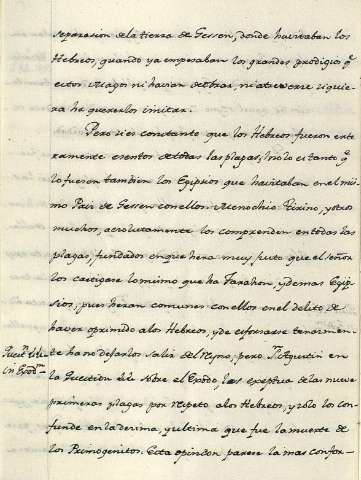 separasion de la tierra de Gessen, donde havitaban los
Hebreos, quando ya empesaban los grandes prodigios q.^e
estos Magos ni havian de obrar, ni atreverse siquie-
ra ha quererlos imitar.
Pero si es constante que los Hebreos fueron ente
ramente esentos de todas las plagas, no lo es tanto q.^e
lo fueron tambien los Egipsios que havitaban en el mis
mo Pais de Gessen con ellos. Menochio Tirino, y otros
muchos, absolutamente los comprenden en todas las
plagas, fundados en que hera muy justo que el señor
los castigase lo mismo que ha Farahon, y demas Egip
sios, pues heran comunes con ellos en el delito de
haver oprimido a los Hebreos, y de esforsarse tenasmen-
te ha no dejarlos salir del Reyno; pero S.^n Agustin en
la Question sobre el Exodo, los exeptua de las nueve
primeras plagas por respeto a los Hebreos, y solo los con
funde en la desima, y ultima que fue la muerte de
los Primogenitos. Esta opinion parese la mas confor-
Quest.^n
in Exod.^m